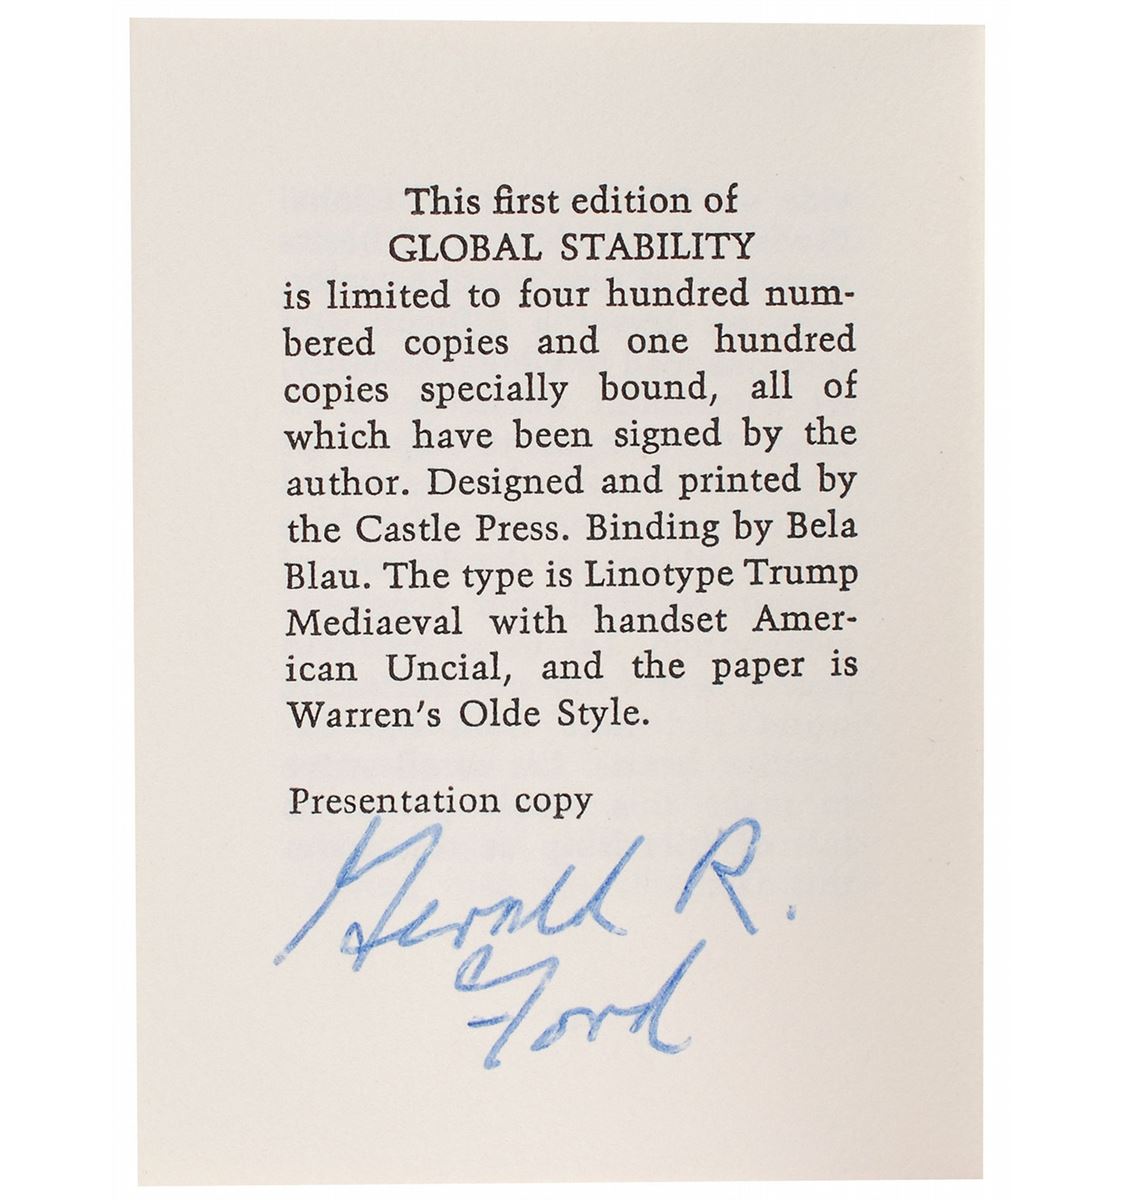 This first edition of
GLOBAL STABILITY
is limited to four hundred num-
bered copies and one hundred
copies specially bound, all of
which have been signed by the
author. Designed and printed by
the Castle Press. Binding by Bela
Blau. The type is Linotype Trump
Mediaeval with handset Amer-
ican Uncial, and the paper is
Warren's Olde Style.
Presentation copy
Gerald R.
Ford